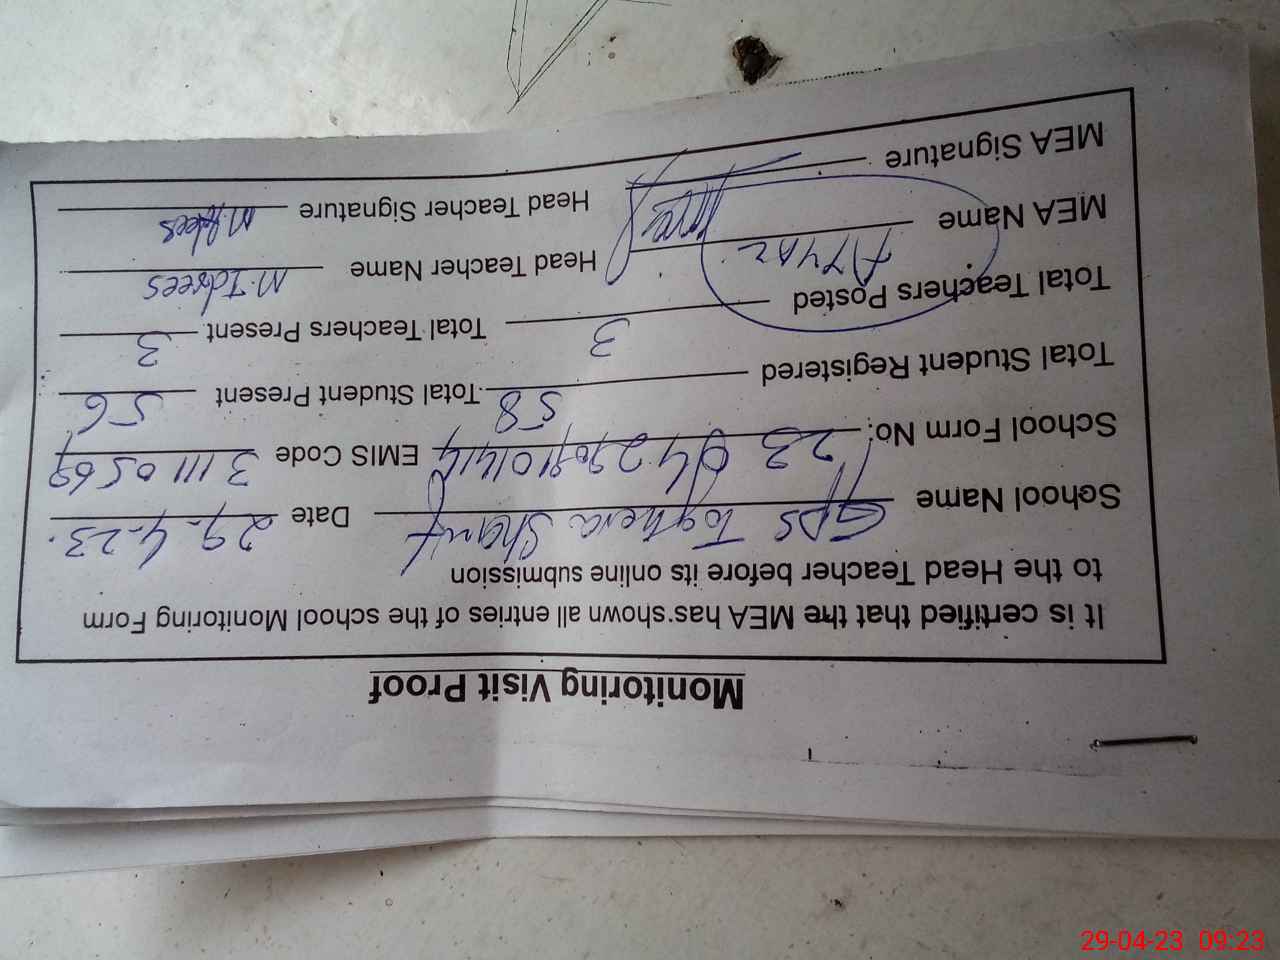 Monitoring Visit Proof
It is certified that the MEA has shown all entries of the school Monitoring Form
to the Head Teacher before its online submission
School Name GPS Toghera Sharif Date 29-4-23.
School Form No: 23 04290910144 EMIS Code 31110569
Total Student Registered 58 Total Student Present 56
Total Teachers Posted 3 Total Teachers Present 3
MEA Name AYYAZ Head Teacher Name M.Idrees
MEA Signature Head Teacher Signature M.Idrees
29-04-23 09:23